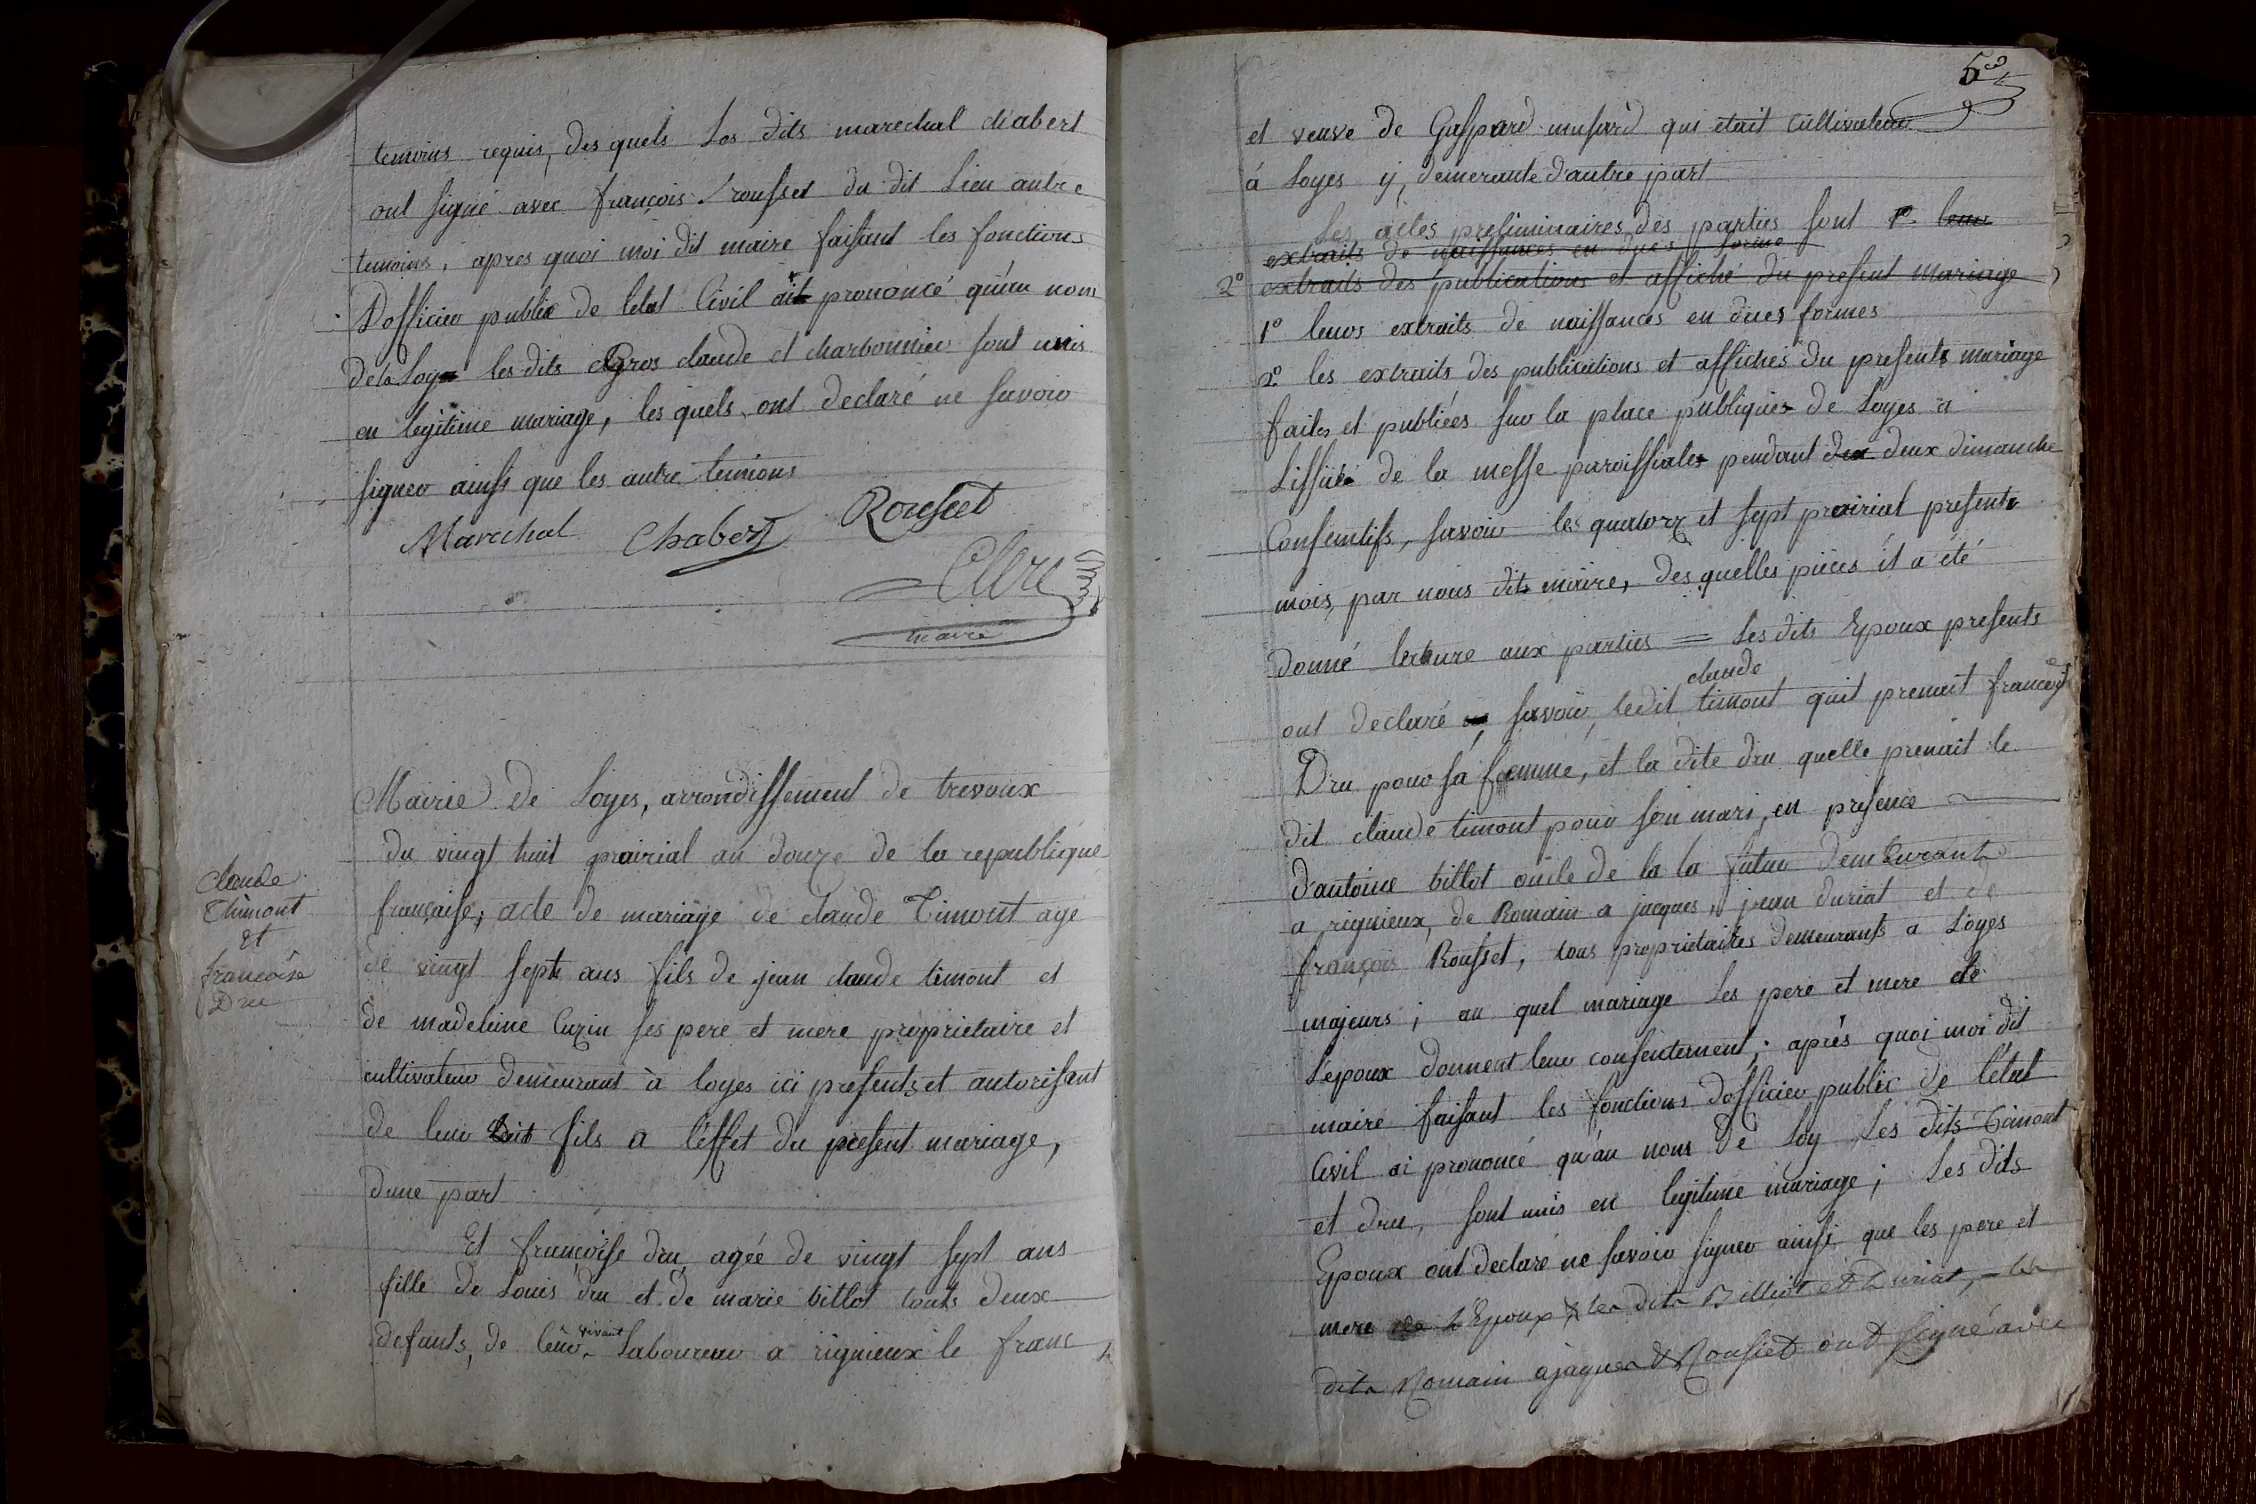 temoins requis, des quels Les dits marechal chabert
ont signé avec françois rousset du dit Lieu autre
temoins, apres quoi moi dit maire faisant les fonctions
Dofficier public de letat Civil ait prononcé qu'au nom
de la Loy les dits Gros claude et charbonnier sont unis
en legitime mariage, les quels ont declaré ne savoir
signer ainsi que les autre temions
Marechal Chabert Rousset
Clerc
maire
Claude
Thimont
et
francoise
Dru
Mairie De Loyes, arrondissement de trevoux
du vingt huit prairial an douze de la republique
française, acte de mariage de claude Timont agé
de vingt sept ans fils de jean claude timont et
de madeleine Curin ses pere et mere proprietaire et
cultivateur demeurant à loyes ici presents et autorisant
de leur fils a l'effet du present mariage,
dune part
Et françoise dru agée de vingt sept ans
fille de Louis dru et de marie billot touts deux
defunts, de leur vivant Laboureur a rignieux le franc
5
et veuve de Gaspard musard qui etait Cultivateur
á Loyes y, demerante d'autre part
Les actes preliminaires des parties sont 1º leur
extraits de naissances en dues forme
2º extraits des publications et affiché du present mariage
1º leurs extraits de naissances en dues formes
2º les extraits des publications et affiches du presents mariage
faites et publiées sur la place publiques de Loyes a
Lissue de la messe paroissiales pendant deux dimanche
Consecutifs, savoir les quatorz et sept prairial present
mois, par nous dit maire, des quelles pièces il a été
donné lecture aux parties = Les dits Epoux presents
ont declaré savoir, ledit claude timont quit prenait françoise
Dru pour sa femme, et la dite dru quelle prenait le
dit claude timont pour son mari, en presence
d'antoine billot oncle de la la futur demeurant
a rignieux, de Romain a jacques, jean duriat et de
françois Rousset, tous proprietaires demeurants a Loyes
majeurs; au quel mariage Les pere et mere de
L'epoux donnent leur consentement; aprés quoi moi dit
maire faisant les fonctions dofficier public de l'état
Civil ai prononcé qu'au nom de Loy Les dits Timont
et dru, sont unis en legitime mariage; Les dits
Epoux ont declaré ne savoir signer ainsi que les pere et
mere de L'Epoux & les dits Billiot et Duriat, les
dits Romain ajaques & Rousset ont signé avec